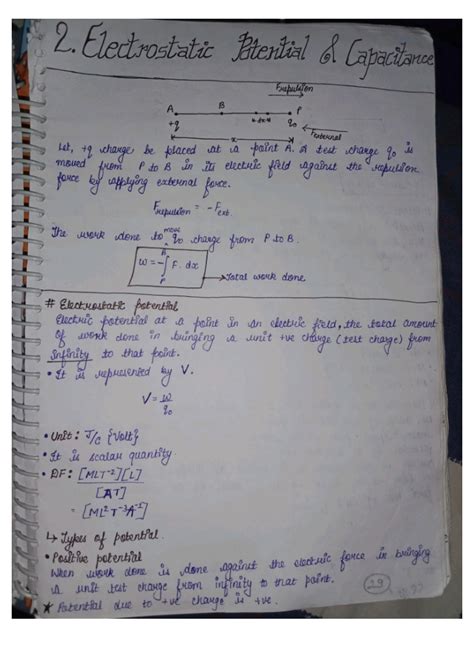 2. Electrostatic Potential & Capacitance
Frepulsion
A B P
+q dx q₀
x Fexternal
Let, +q charge be placed at a point A. A test charge q₀ is
moved from P to B in its electric field against the repulsion
force by applying external force.
Frepulsion = -Fext.
The work done to move q₀ charge from P to B.
W = -∫ᴮₚ F. dx
→ Total work done
# Electrostatic potential
Electric potential at a point in an electric field, the total amount
of work done in bringing a unit +ve charge (test charge) from
infinity to that point.
• It is represented by V.
V = w/q₀
• Unit: J/C {Volt}
• It is scalar quantity
• DF: [MLT⁻²][L]
[AT]
= [ML²T⁻³A⁻¹]
↳ Types of potential.
• Positive potential
When work done is done against the electric force in bringing
a unit test charge from infinity to that point.
★ Potential due to +ve charge is +ve.